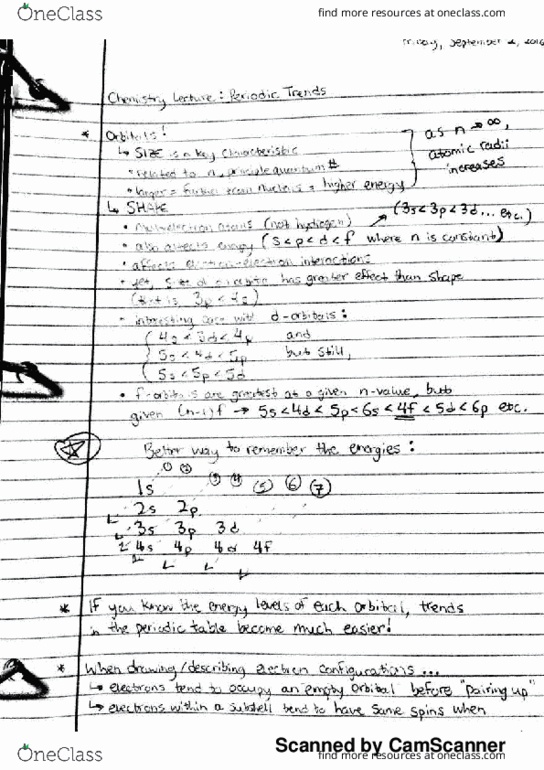 OneClass
find more resources at oneclass.com
Friday, September 2, 2016
Chemistry Lecture: Periodic Trends
* Orbitals!
↳ SIZE is a key characteristic
• related to n, principle quantum #
• larger = further from nucleus = higher energy
as n → ∞,
atomic radii
increases
↳ SHAPE
• multielectron atoms (not hydrogen)
(3s<3p<3d... etc.)
• also affects energy (s<p<d<f where n is constant)
• affects electron-electron interactions
• yet, size of orbital has greater effect than shape
(that is, 3p < 4s)
• interesting case with d-orbitals:
4s < 3d < 4p and
5s < 4d < 5p but still,
5s < 5p < 5d
• f-orbitals are greatest at a given n-value, but
given (n-1)f → 5s<4d< 5p<6s <4f < 5d <6p etc.
Better way to remember the energies:
① ② ③ ④ ⑤ ⑥ ⑦
1s
2s 2p
3s 3p 3d
4s 4p 4d 4f
* If you know the energy levels of each orbital, trends
in the periodic table become much easier!
* When drawing/describing electron configurations...
↳ electrons tend to occupy an empty orbital before "pairing up"
↳ electrons within a subshell tend to have same spins when
Scanned by CamScanner
OneClass
find more resources at oneclass.com